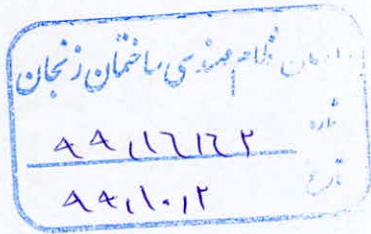 سازمان نظام مهندسی ساختمان زنجان
شماره ۹۹/۱۶۱۶۲
تاریخ ۹۹/۱۰/۲